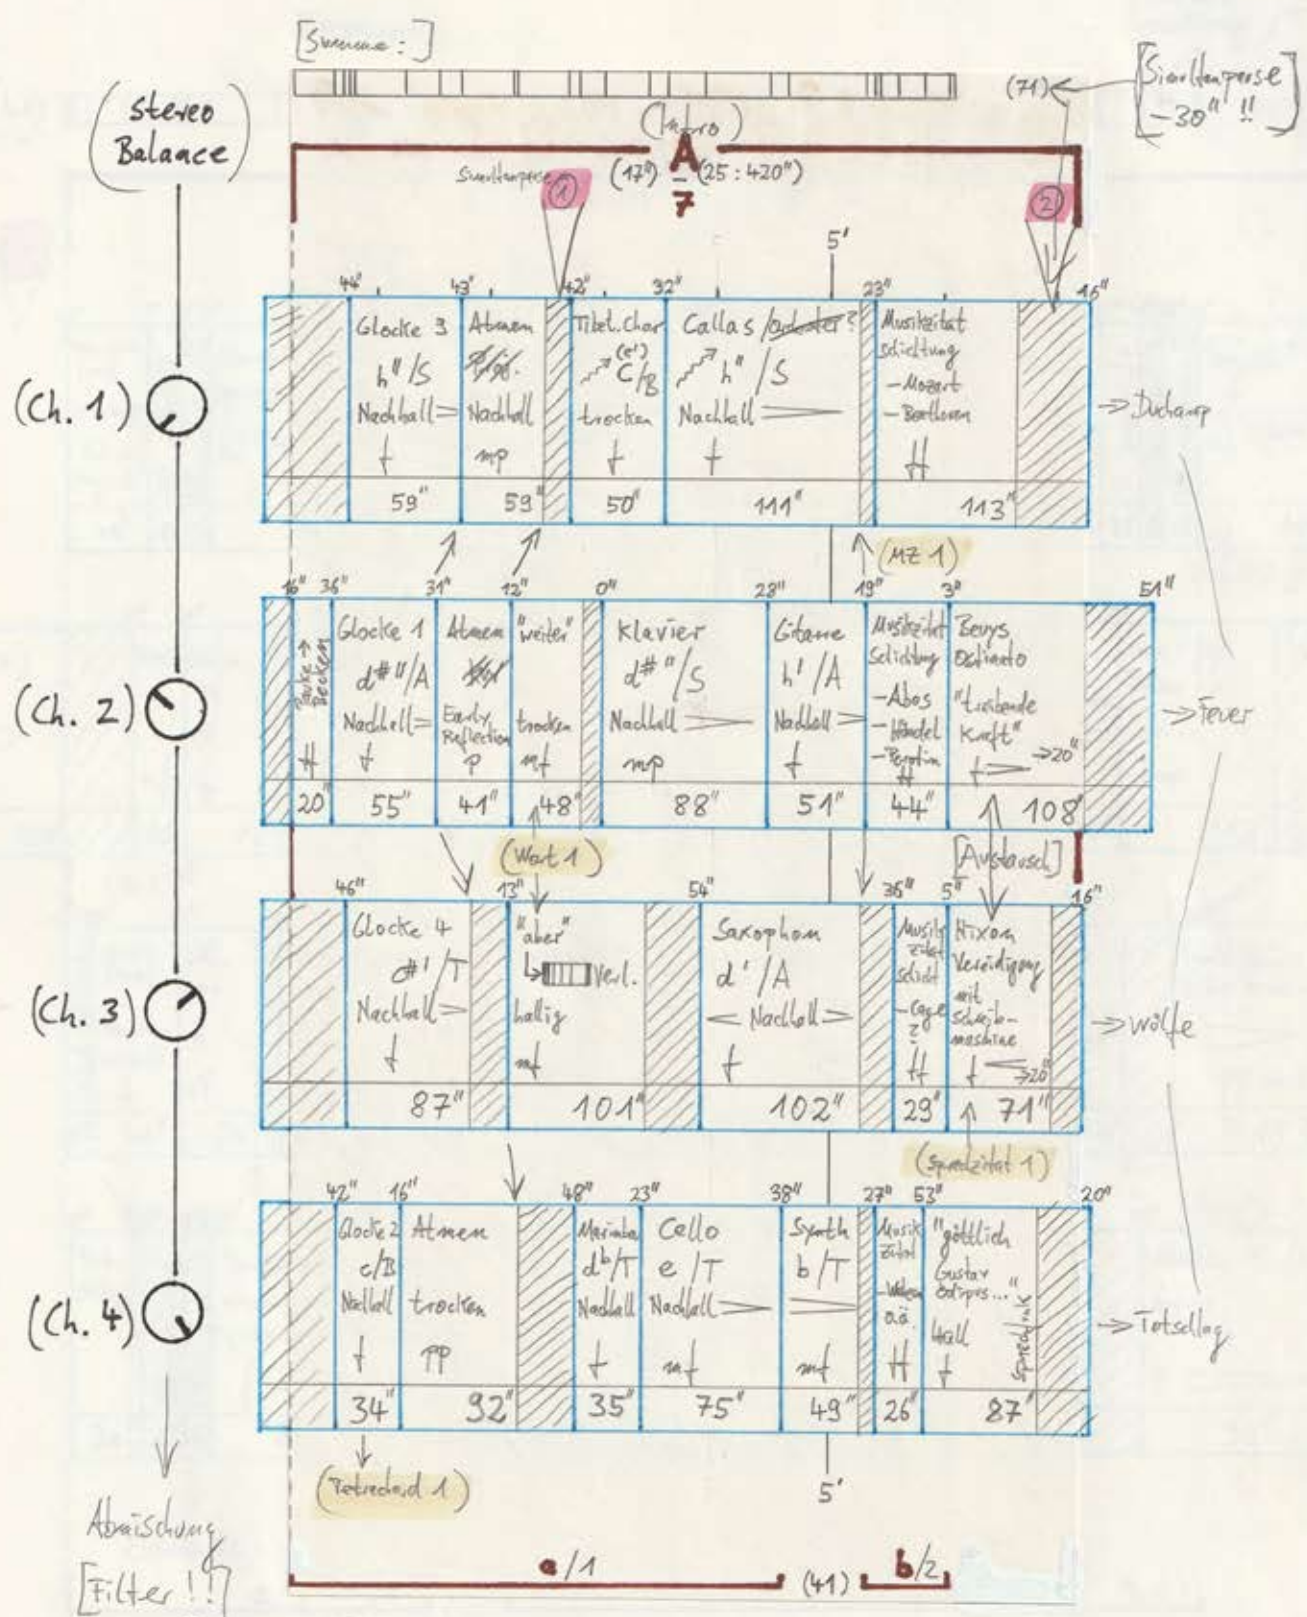 (Stereo
Balance)
(71)
-30" !!]
(Intro)
A
(17") (25:420")
7
①
②
5'
44" 43" 42" 32" 23"
(Ch. 1)
Glocke 3
h"/S
Nachhall
f
59"
Atmen
Nachhall
mp
59"
(c')
C/B
trocken
f
50"
Callas
h"/S
Nachhall
f
111"
Musikzitat
Schichtung
- Mozart
- Beethoven
ff
113"
(MZ 1)
16" 36" 31" 12" 0" 28" 19" 3" 51"
(Ch. 2)
Pauke →
Becken
ff
20"
Glocke 1
d#"/A
Nachhall
f
55"
Atmen
Early
Reflection
p
41"
"weiter"
trocken
mf
48"
Klavier
d#"/S
Nachhall
mp
88"
Gitarre
h'/A
Nachhall
f
51"
Musikzitat
Schichtung
- Abos
- Händel
ff
44"
Ostinato
"treibende
Kraft"
→20"
f
108"
→ Fever
(Wort 1)
[Austausch]
46" 13" 54" 36" 5" 16"
(Ch. 3)
Glocke 4
Nachhall
f
87"
"aber"
verl.
hallig
mf
101"
Saxophon
d'/A
Nachhall
f
102"
Musik
zitat
Schicht
- Cage
?
ff
29"
Nixon
Vereidigung
mit
Schreib-
maschine
f
→20"
71"
→ Wölfe
42" 16" 48" 23" 38" 27" 53" 20"
(Ch. 4)
Glocke 2
c/B
Nachhall
f
34"
Atmen
trocken
pp
92"
Marimba
db/T
Nachhall
f
35"
Cello
e/T
Nachhall
mf
75"
Synth
b/T
mf
49"
Musik
zitat
ff
26"
"göttlich
Gustav
Ödipus..."
Hall
f
87"
→ Totschlag
5'
Abmischung
[Filter!!]
a/1
(41)
b/2